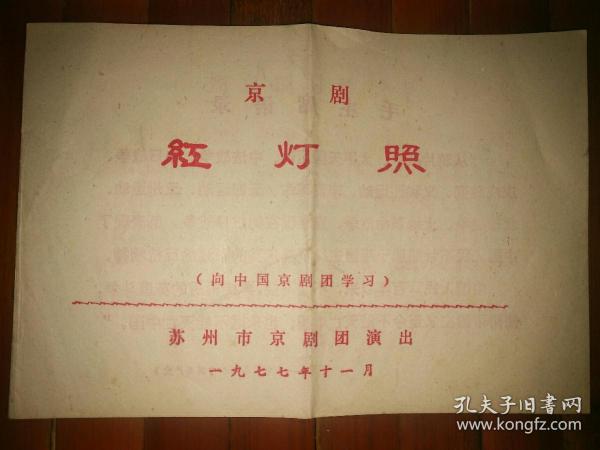 京剧
紅灯照
（向中国京剧团学习）
苏州市京剧团演出
一九七七年十一月
孔夫子旧书网
www.kongfz.com